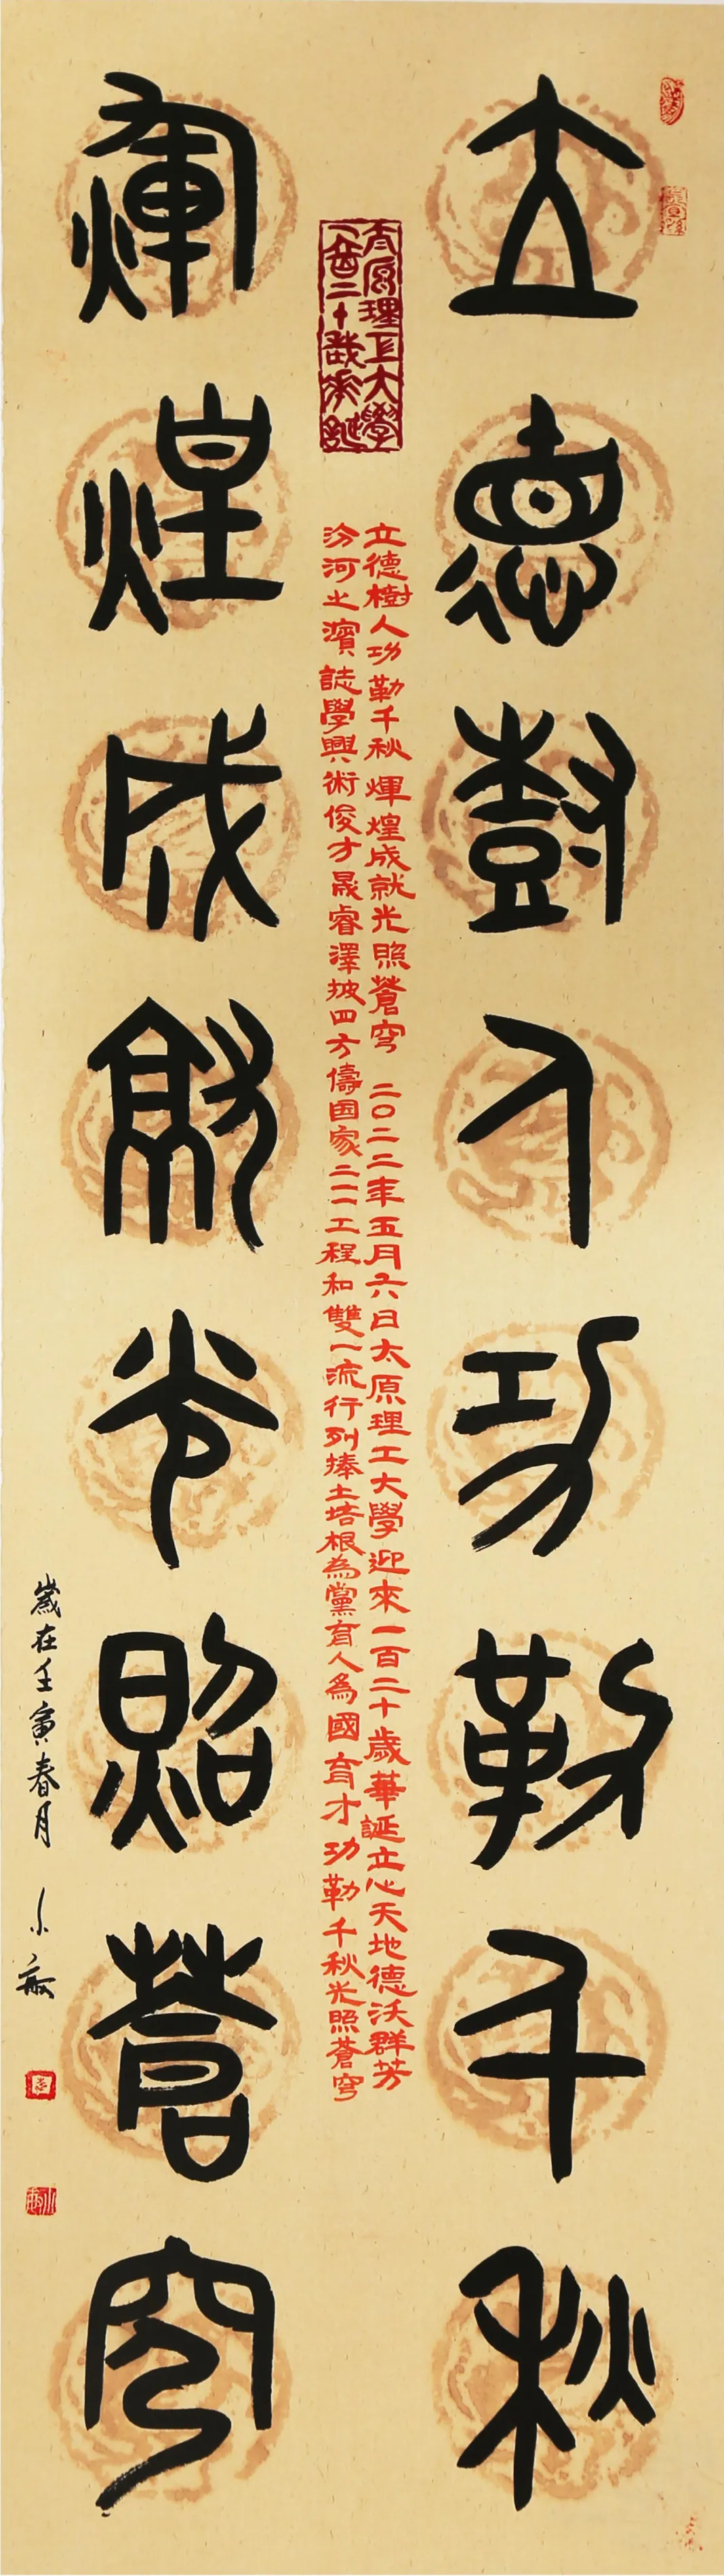 立德樹人功勒千秋
太原理工大學
一百二十歲華誕
立德樹人功勒千秋煇煌成就光照蒼穹 二〇二二年五月六日太原理工大學迎來一百二十歲華誕立心天地德沃群芳
汾河之濱誌學興術俊才晟睿澤披四方儔国家二一一工程和雙一流行列捧土培根為黨育人為國育才功勒千秋光照蒼穹
煇煌成就光照蒼穹
歲在壬寅春月 小敏